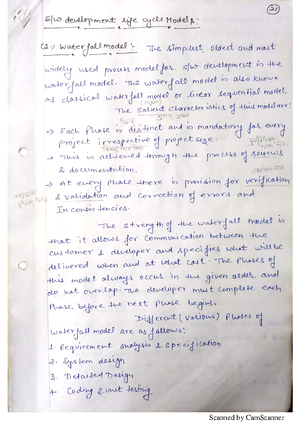 21
S/w development life cycle Models:
(1) Waterfall model: The simplest, oldest and most
widely used process model for s/w development is the
waterfall model. The waterfall model is also known
as classical waterfall model or linear sequential model.
The Salient Characteristics of this model are:
→ Each Phase is distinct and is mandatory for every
project irrespective of project size.
→ This is achieved through the process of reviews
& documentation.
→ At every phase there is provision for verification
& validation and correction of errors and
Inconsistencies.
The strength of the waterfall model is
that it allows for communication between the
customer & developer and specifies what will be
delivered when and at what cost. The Phases of
this model always occur in the given order and
do not overlap. The developer must complete each
Phase before the next Phase begins.
Different (various) Phases of
waterfall model are as follows:
1. Requirement analysis & specification
2. System design
3. Detailed Design
4. Coding & unit testing
Scanned by CamScanner